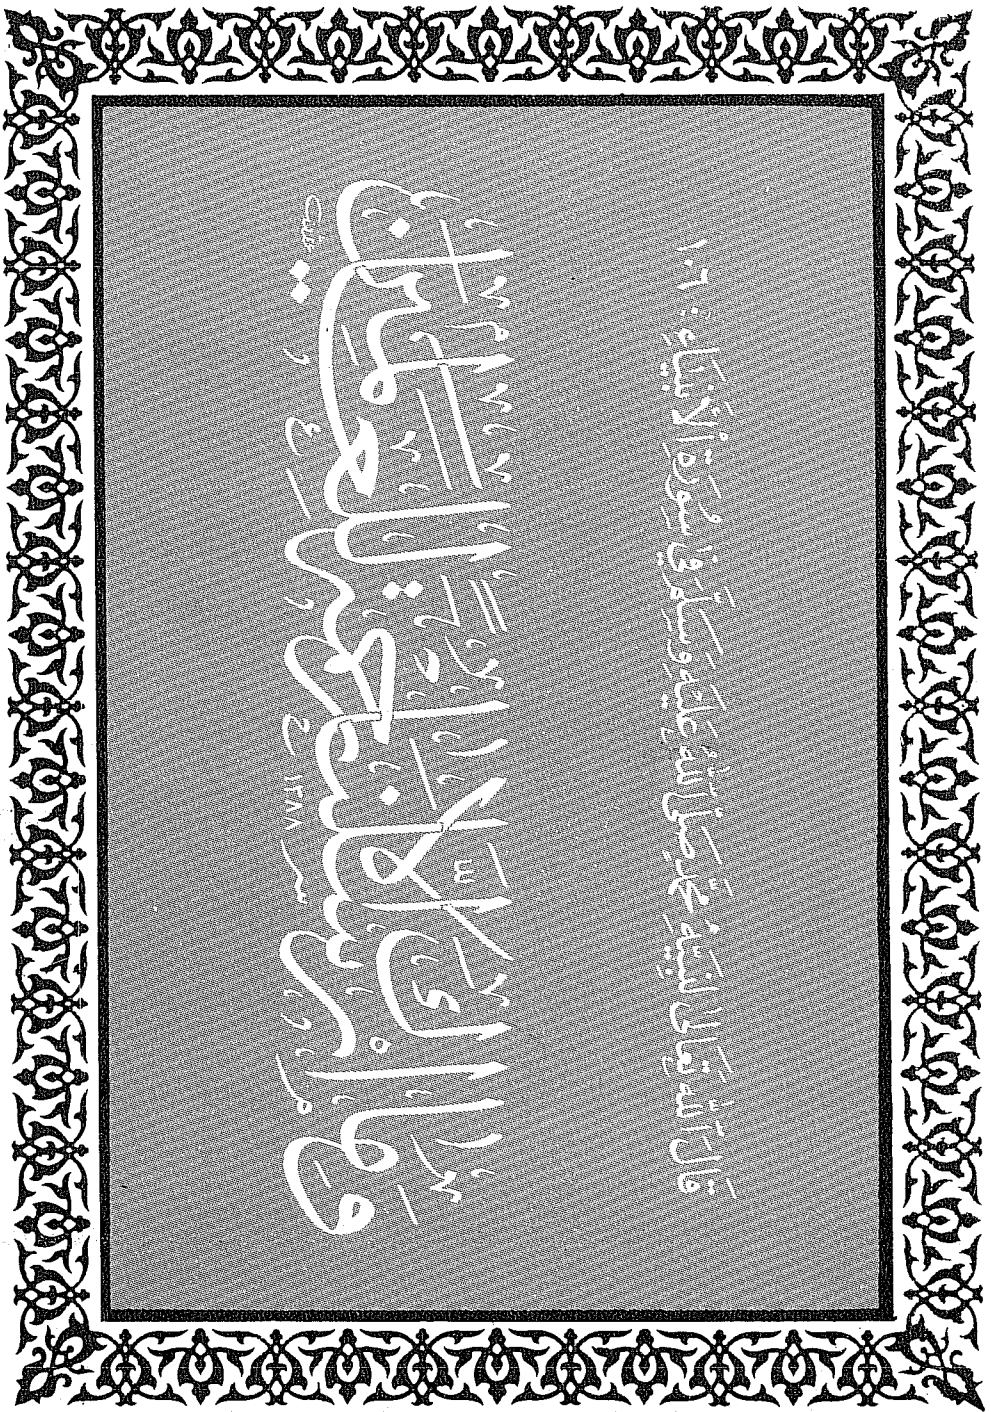 قَالَ اللّٰهُ تَعَالَى لِنَبِيِّهِ مُحَمَّدٍ صَلَّى اللّٰهُ عَلَيْهِ وَسَلَّمَ فِي سُورَةِ الْأَنْبِيَاءِ : ١٠٦
وَمَا أَرْسَلْنَاكَ إِلَّا رَحْمَةً لِلْعَالَمِينَ
١٣٨٨